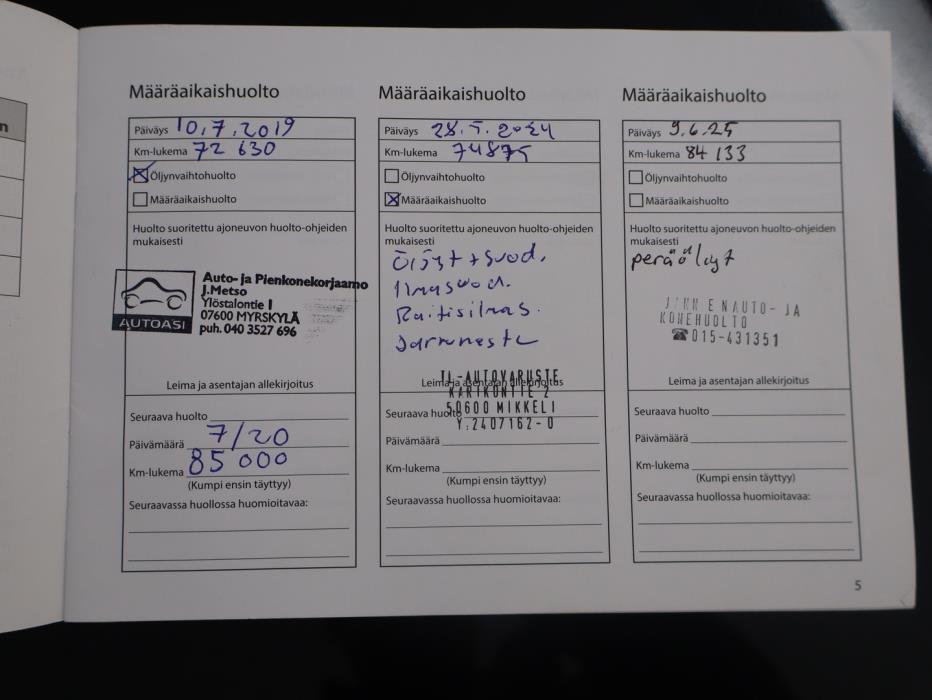 n
Määräaikaishuolto
Päiväys 10.7.2019
Km-lukema 72 630
Öljynvaihtohuolto
Määräaikaishuolto
Huolto suoritettu ajoneuvon huolto-ohjeiden
mukaisesti
AUTOASI
Auto- ja Pienkonekorjaamo
J.Metso
Ylöstalontie 1
07600 MYRSKYLÄ
puh. 040 3527 696
Leima ja asentajan allekirjoitus
Seuraava huolto
Päivämäärä 7/20
Km-lukema 85 000
(Kumpi ensin täyttyy)
Seuraavassa huollossa huomioitavaa:
Määräaikaishuolto
Päiväys 28.5.2024
Km-lukema 74875
Öljynvaihtohuolto
Määräaikaishuolto
Huolto suoritettu ajoneuvon huolto-ohjeiden
mukaisesti
Öljyt + suod.
Ilmasuod.
Raitisilmas.
Jarruneste
TL-AUTOVARUSTE
Leima ja asentajan allekirjoitus
KARIKONTIE 2
50600 MIKKELI
Seuraava huolto
Y:2407162-0
Päivämäärä
Km-lukema
(Kumpi ensin täyttyy)
Seuraavassa huollossa huomioitavaa:
Määräaikaishuolto
Päiväys 9.6.25
Km-lukema 84 133
Öljynvaihtohuolto
Määräaikaishuolto
Huolto suoritettu ajoneuvon huolto-ohjeiden
mukaisesti
peräöljyt
AUTO- JA
KONEHUOLTO
☎015-431351
Leima ja asentajan allekirjoitus
Seuraava huolto
Päivämäärä
Km-lukema
(Kumpi ensin täyttyy)
Seuraavassa huollossa huomioitavaa:
5